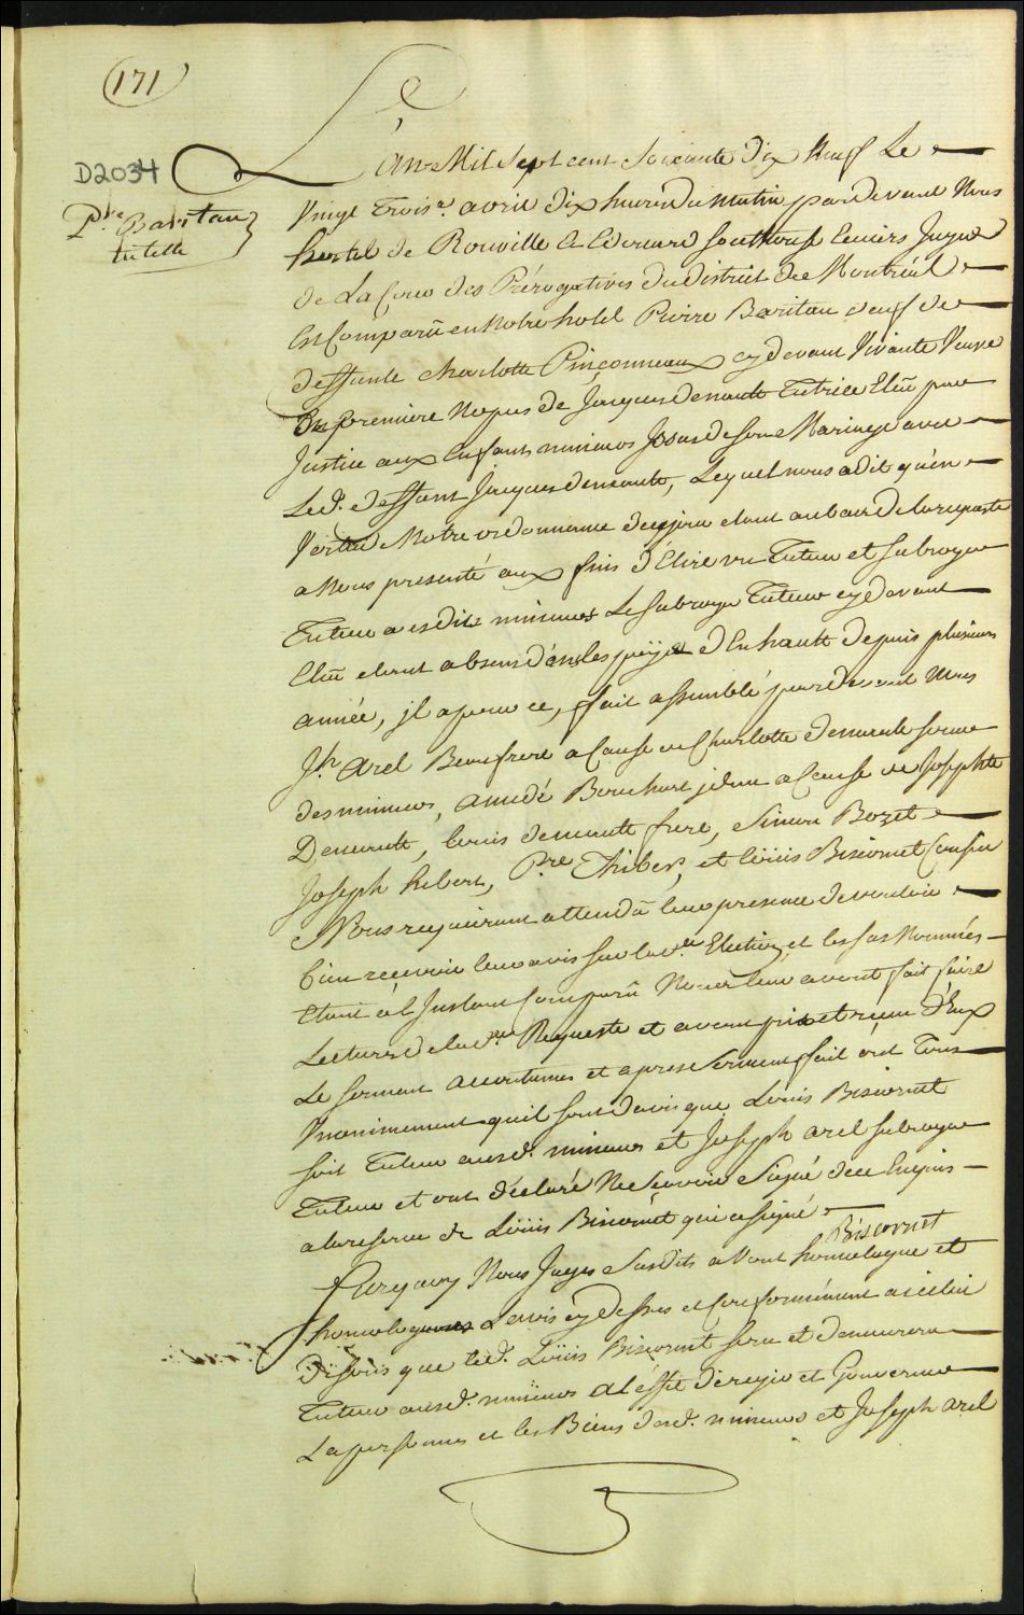 171
D2034
Pre Baritau
tutelle
L'An Mil Sept cent Soixante Dix Neuf Le
Vingt Trois.e avril Dix heures du matin pardevant Nous
hertel de Rouville et Edouard Southouse Ecuiers Juges
de La Cour des Prérogatives du district de Montréal
Est Comparü en Notre hotel Pierre Baritau veuf de
deffunte charlotte Pinçonneau cy devant Vivante Veuve
En premiere Nopces de Jacques denaults Tutrice Elüe par
Justice aux Enfants mineurs Jssus de Son Mariage avec
Led. deffunt Jacques denault, Lequel nous a dit qu'en
Vertu de Notre ordonnance de ce jour etant au bas de la requeste
a Nous presenté aux fins d'Elire un Tuteur et Subroge
Tuteur auxdits mineurs Le Subroge Tuteur cy devant
Elü etant absens dans les païs d'Enhault depuis plusieurs
année, jl a pour ce, fait assemblé pardevant Nous
Jh. Arel Beaufrere a Cause de Charlotte Denault Soeur
des mineurs, amedé Bouchard jdem a Cause de Josephte
Denault, Louis denault frere, Simon Bozet
Joseph hebert, Pre Thibert, et Loüis Biscornet Cousin
Nous requirent attendü leur presence de vouloir
bien recevoir leur avis sur lad.te Election, et les sus Nommés
Etant a l'Instant Comparü Nous leur avons fait faire
Lecture de lad.te Requeste et avons pris et reçu d'Eux
Le serment accoutumé et apres Serment fait ont Tous
Vnanimement quil sont d'avis que Louis Biscornet
soit Tuteur auxd. mineurs et Joseph arel Subroge
Tuteur et ont déclaré Ne Scavoir Signé de ce Enquis
a la reserve de Loüis Biscornet qui a signé
Biscornet
Surquoy Nous Juges Susdits avons homologué et
homologuons Lavis cy dessus et Conformément a icelui
Disons que led. Loüis Biscornet sera et demeurera
Tuteur auxd. mineurs a l'éffet de regir et Gouverner
La personne et les Biens desd. mineurs et Joseph arel